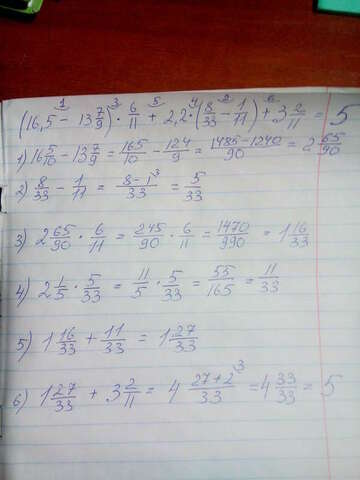 (16,5 - 13 7/9) · 6/11 + 2,2 · (8/33 - 1/11) + 3 2/11 = 5
1) 16 5/10 - 13 7/9 = 165/10 - 124/9 = (1485 - 1240)/90 = 2 65/90
2) 8/33 - 1/11 = (8 - 1³)/33 = 5/33
3) 2 65/90 · 6/11 = 245/90 · 6/11 = 1470/990 = 1 16/33
4) 2 1/5 · 5/33 = 11/5 · 5/33 = 55/165 = 11/33
5) 1 16/33 + 11/33 = 1 27/33
6) 1 27/33 + 3 2/11 = 4 (27 + 2³)/33 = 4 33/33 = 5